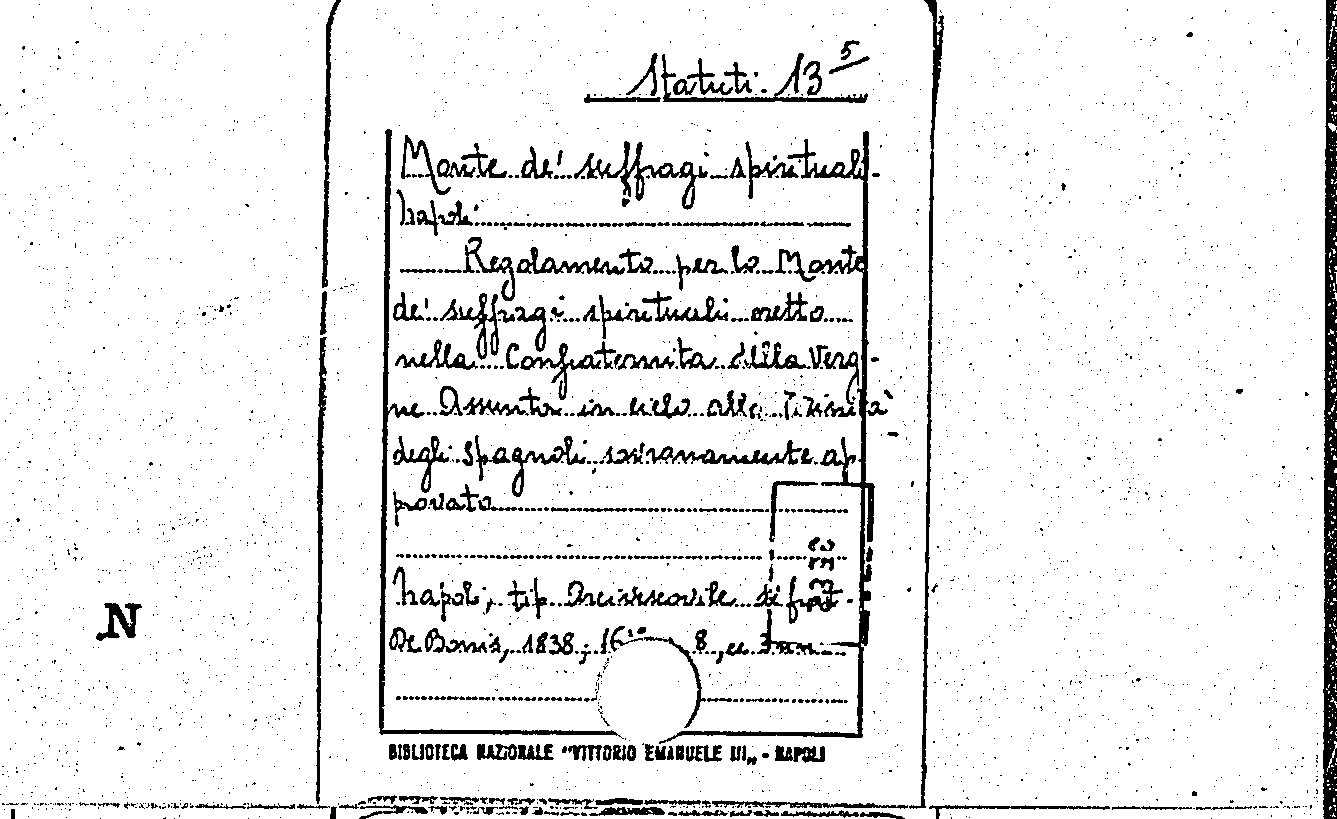 Statuti. 13 5
Monte de' suffragi spirituali.
Napoli
Regolamento per lo Monte
de' suffragi spirituali eretto
nella Confraternita della Vergi-
ne Assunta in cielo alla Trinità
degli Spagnoli, sovranamente ap-
provato
Napoli, tip. Arcivescovile di frat.
De Bonis, 1838; 16° 8,
N
BIBLIOTECA NAZIONALE "VITTORIO EMANUELE III„ - NAPOLI